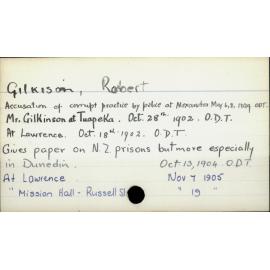 Gilkison, Robert
Accusation of corrupt practice by police at Alexandra May 6,8, 1909 ODT.
Mr. Gilkinson at Tuapeka. Oct. 28th. 1902. O.D.T.
At Lawrence. Oct. 18th. 1902. O.D.T.
Gives paper on N.Z. prisons but more especially
in Dunedin. Oct 13, 1904. O.D.T.
At Lawrence Nov 7 1905
" Mission Hall - Russell St " 19 "